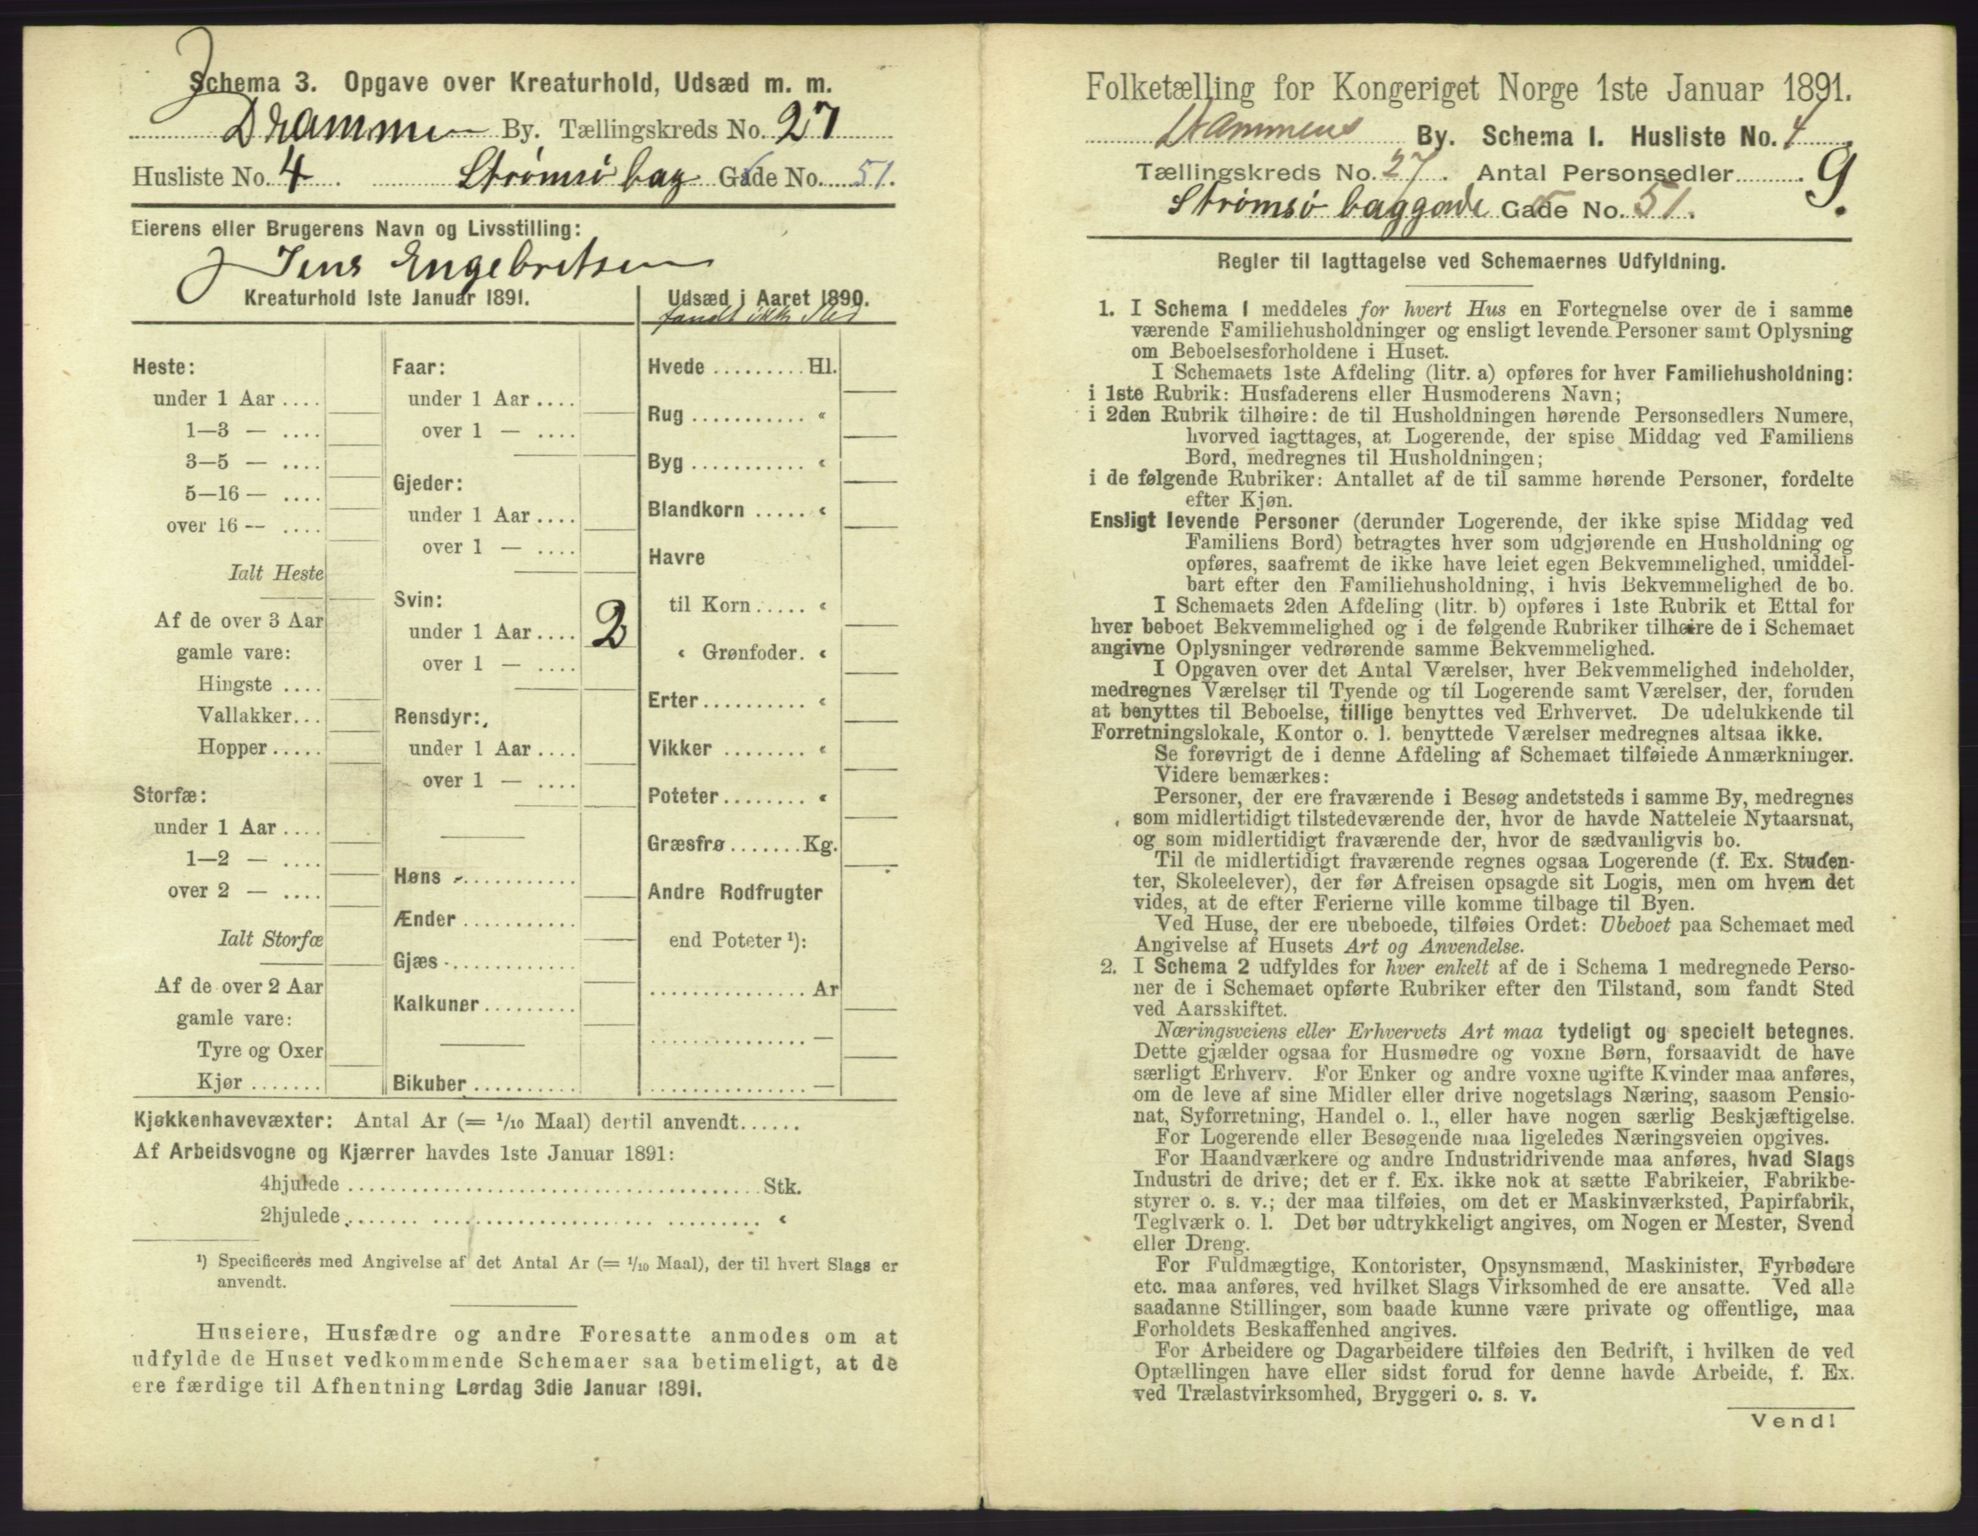 Schema 3. Opgave over Kreaturhold, Udsæd m. m.
Drammen By. Tællingskreds No. 27
Husliste No. 4 Strømsø bag Gade No. 51.
Eierens eller Brugerens Navn og Livsstilling:
Jens Engebretsen
Kreaturhold 1ste Januar 1891.
Heste:
under 1 Aar ....
1—3 — ....
3—5 — ....
5—16 — ....
over 16 — ....
Ialt Heste
Af de over 3 Aar
gamle vare:
Hingste ....
Vallakker...
Hopper .....
Storfæ:
under 1 Aar ....
1—2 — ....
over 2 — ....
Ialt Storfæ
Af de over 2 Aar
gamle vare:
Tyre og Oxer
Kjør .......
Faar:
under 1 Aar ....
over 1 — ....
Gjeder:
under 1 Aar ....
over 1 — ....
Svin:
under 1 Aar .... 2
over 1 — ....
Rensdyr:
under 1 Aar ....
over 1 — ....
Høns ...........
Ænder ...........
Gjæs ............
Kalkuner .........
Bikuber ..........
Udsæd i Aaret 1890.
fandt ikke Sted
Hvede ......... Hl.
Rug ........... «
Byg ........... «
Blandkorn ..... «
Havre
til Korn ..... «
« Grønfoder. «
Erter.......... «
Vikker ........ «
Poteter........ «
Græsfrø ....... Kg.
Andre Rodfrugter
end Poteter ¹):
............... Ar
............... —
............... —
Kjøkkenhavevæxter: Antal Ar (= 1/10 Maal) dertil anvendt......
Af Arbeidsvogne og Kjærrer havdes 1ste Januar 1891:
4hjulede ....................................... Stk.
2hjulede ....................................... «
¹) Specificeres med Angivelse af det Antal Ar (= 1/10 Maal), der til hvert Slags er
anvendt.
Huseiere, Husfædre og andre Foresatte anmodes om at
udfylde de Huset vedkommende Schemaer saa betimeligt, at de
ere færdige til Afhentning Lørdag 3die Januar 1891.
Folketælling for Kongeriget Norge 1ste Januar 1891.
Drammens By. Schema 1. Husliste No. 4
Tællingskreds No. 27. Antal Personsedler ........ 9.
Strømsø baggade Gade No. 51.
Regler til Iagttagelse ved Schemaernes Udfyldning.
1. I Schema 1 meddeles for hvert Hus en Fortegnelse over de i samme
værende Familiehusholdninger og ensligt levende Personer samt Oplysning
om Beboelsesforholdene i Huset.
I Schemaets 1ste Afdeling (litr. a) opføres for hver Familiehusholdning:
i 1ste Rubrik: Husfaderens eller Husmoderens Navn;
i 2den Rubrik tilhøire: de til Husholdningen hørende Personsedlers Numere,
hvorved iagttages, at Logerende, der spise Middag ved Familiens
Bord, medregnes til Husholdningen;
i de følgende Rubriker: Antallet af de til samme hørende Personer, fordelte
efter Kjøn.
Ensligt levende Personer (derunder Logerende, der ikke spise Middag ved
Familiens Bord) betragtes hver som udgjørende en Husholdning og
opføres, saafremt de ikke have leiet egen Bekvemmelighed, umiddel-
bart efter den Familiehusholdning, i hvis Bekvemmelighed de bo.
I Schemaets 2den Afdeling (litr. b) opføres i 1ste Rubrik et Ettal for
hver beboet Bekvemmelighed og i de følgende Rubriker tilhøire de i Schemaet
angivne Oplysninger vedrørende samme Bekvemmelighed.
I Opgaven over det Antal Værelser, hver Bekvemmelighed indeholder,
medregnes Værelser til Tyende og til Logerende samt Værelser, der, foruden
at benyttes til Beboelse, tillige benyttes ved Erhvervet. De udelukkende til
Forretningslokale, Kontor o. l. benyttede Værelser medregnes altsaa ikke.
Se forøvrigt de i denne Afdeling af Schemaet tilføiede Anmærkninger.
Videre bemærkes:
Personer, der ere fraværende i Besøg andetsteds i samme By, medregnes
som midlertidigt tilstedeværende der, hvor de havde Natteleie Nytaarsnat,
og som midlertidigt fraværende der, hvor de sædvanligvis bo.
Til de midlertidigt fraværende regnes ogsaa Logerende (f. Ex. Studen-
ter, Skoleelever), der før Afreisen opsagde sit Logis, men om hvem det
vides, at de efter Ferierne ville komme tilbage til Byen.
Ved Huse, der ere ubeboede, tilføies Ordet: Ubeboet paa Schemaet med
Angivelse af Husets Art og Anvendelse.
2. I Schema 2 udfyldes for hver enkelt af de i Schema 1 medregnede Perso-
ner de i Schemaet opførte Rubriker efter den Tilstand, som fandt Sted
ved Aarsskiftet.
Næringsveiens eller Erhvervets Art maa tydeligt og specielt betegnes.
Dette gjælder ogsaa for Husmødre og voxne Børn, forsaavidt de have
særligt Erhverv. For Enker og andre voxne ugifte Kvinder maa anføres,
om de leve af sine Midler eller drive nogetslags Næring, saasom Pensio-
nat, Syforretning, Handel o. l., eller have nogen særlig Beskjæftigelse.
For Logerende eller Besøgende maa ligeledes Næringsveien opgives.
For Haandværkere og andre Industridrivende maa anføres, hvad Slags
Industri de drive; det er f. Ex. ikke nok at sætte Fabrikeier, Fabrikbe-
styrer o. s. v.; der maa tilføies, om det er Maskinværksted, Papirfabrik,
Teglværk o. l. Det bør udtrykkeligt angives, om Nogen er Mester, Svend
eller Dreng.
For Fuldmægtige, Kontorister, Opsynsmænd, Maskinister, Fyrbødere
etc. maa anføres, ved hvilket Slags Virksomhed de ere ansatte. Ved alle
saadanne Stillinger, som baade kunne være private og offentlige, maa
Forholdets Beskaffenhed angives.
For Arbeidere og Dagarbeidere tilføies den Bedrift, i hvilken de ved
Optællingen have eller sidst forud for denne havde Arbeide, f. Ex.
ved Trælastvirksomhed, Bryggeri o. s. v.
Vend!